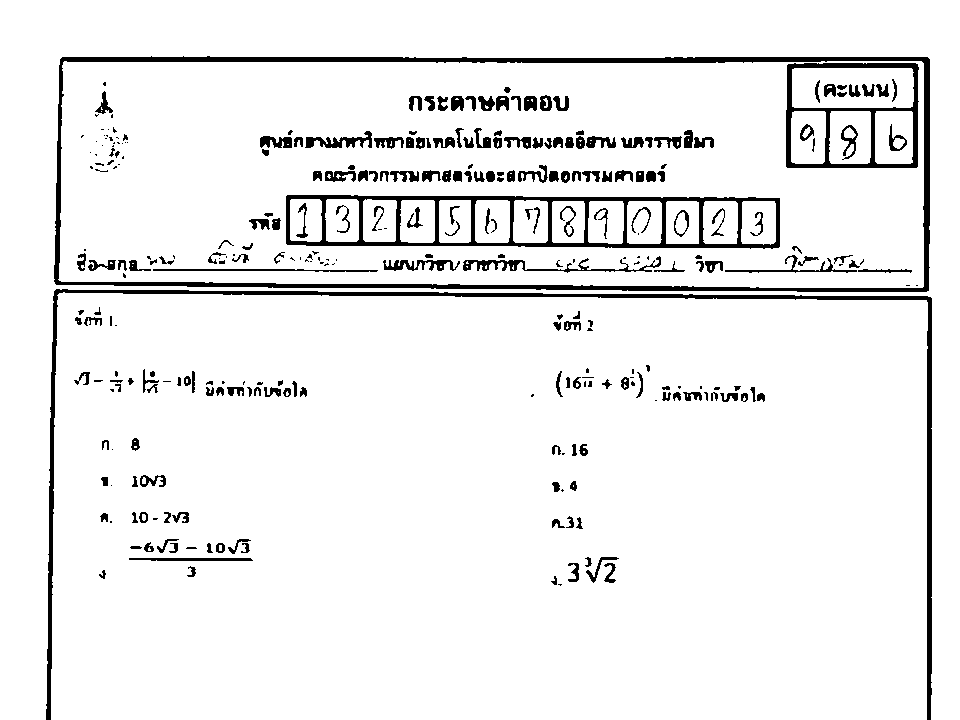 กระดาษคำตอบ
(คะแนน)
ศูนย์กลางมหาวิทยาลัยเทคโนโลยีราชมงคลอีสาน นครราชสีมา
986
คณะวิศวกรรมศาสตร์และสถาปัตยกรรมศาสตร์
รหัส 1324567890023
ชื่อ-สกุล แผนกวิชา/สาขาวิชา วิชา
ข้อที่ 1.
√3 − + | − 10| มีค่าเท่ากับข้อใด
ก. 8
ข. 10√3
ค. 10 - 2√3
ง. (−6√3 − 10√3)/3
ข้อที่ 2
มีค่าเท่ากับข้อใด
ก. 16
ข. 4
ค.31
ง. 3∛2